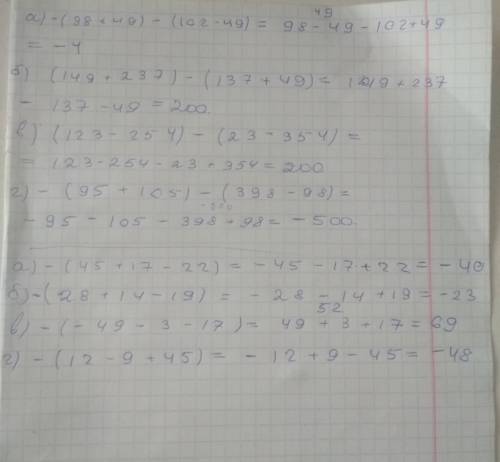 а) -(98+49) - (102-49) = 98 - 49 - 102+49
49
= -4
б) (149 + 237) - (137 + 49) = 149 + 237
- 137 - 49 = 200.
в) (123 - 254) - (23 - 354) =
= 123 - 254 - 23 + 354 = 200
г) - (95 + 105) - (398 - 98) =
- 95 - 105 - 398 + 98 = - 500.
а) - (45 + 17 - 22) = - 45 - 17 + 22 = - 40
б) - (28 + 14 - 19) = - 28 - 14 + 19 = -23
52
в) - (- 49 - 3 - 17) = 49 + 3 + 17 = 69
г) - (12 - 9 + 45) = - 12 + 9 - 45 = -48